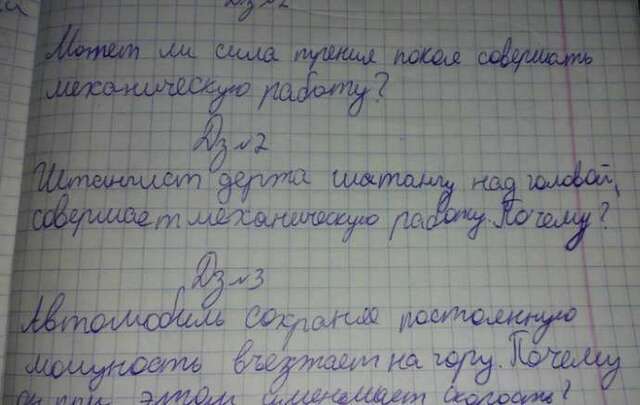 Дз№2
Может ли сила трения покоя совершать
механическую работу?
Дз№2
Штангист держа шатангу над головой,
совершает механическую работу. Почему?
Дз№3
Автомобиль сохраняя постоянную
мощность въезжает на гору. Почему
он при этом уменьшает скорость?